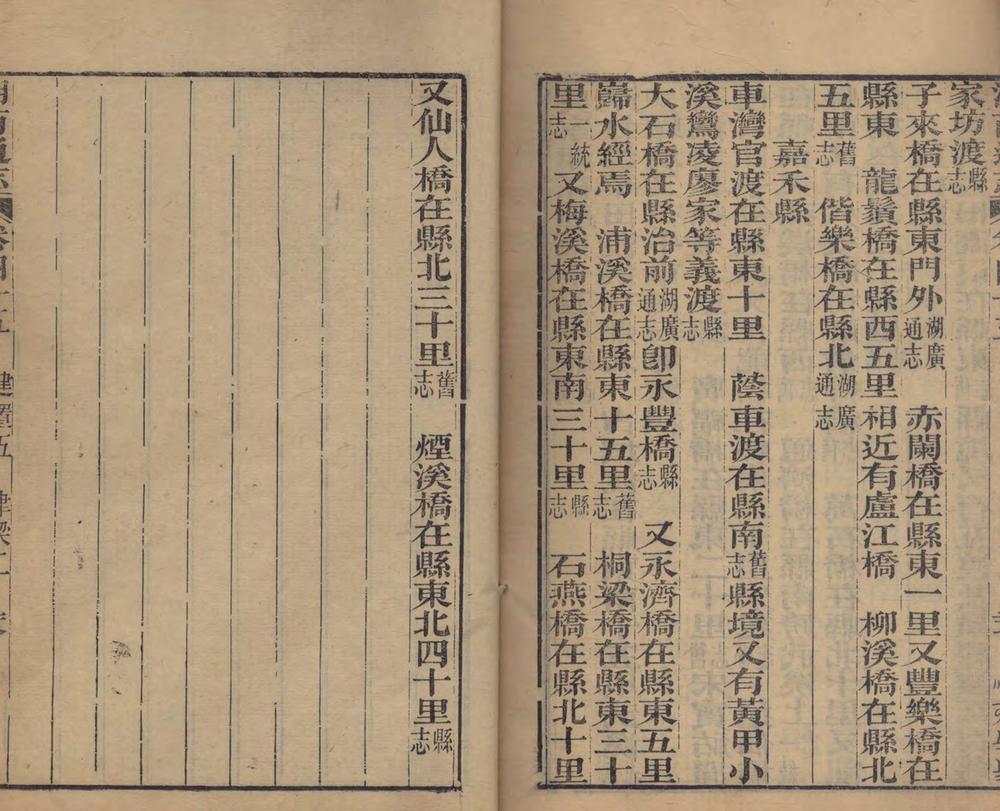 家坊渡縣志
子來橋在縣東門外湖廣通志　赤闌橋在縣東一里又豐樂橋在
縣東　龍鬚橋在縣西五里相近有盧江橋　柳溪橋在縣北
五里舊志　偕樂橋在縣北湖廣通志
嘉禾縣
車灣官渡在縣東十里　蔭車渡在縣南舊志縣境又有黃甲小
溪鸞凌廖家等義渡縣志
大石橋在縣治前湖廣通志卽永豐橋縣志　又永濟橋在縣東五里
歸水經焉　浦溪橋在縣東十五里舊志　桐梁橋在縣東三十
里一統志又梅溪橋在縣東南三十里縣志　石燕橋在縣北十里
又仙人橋在縣北三十里舊志　煙溪橋在縣東北四十里縣志
建置五　津梁